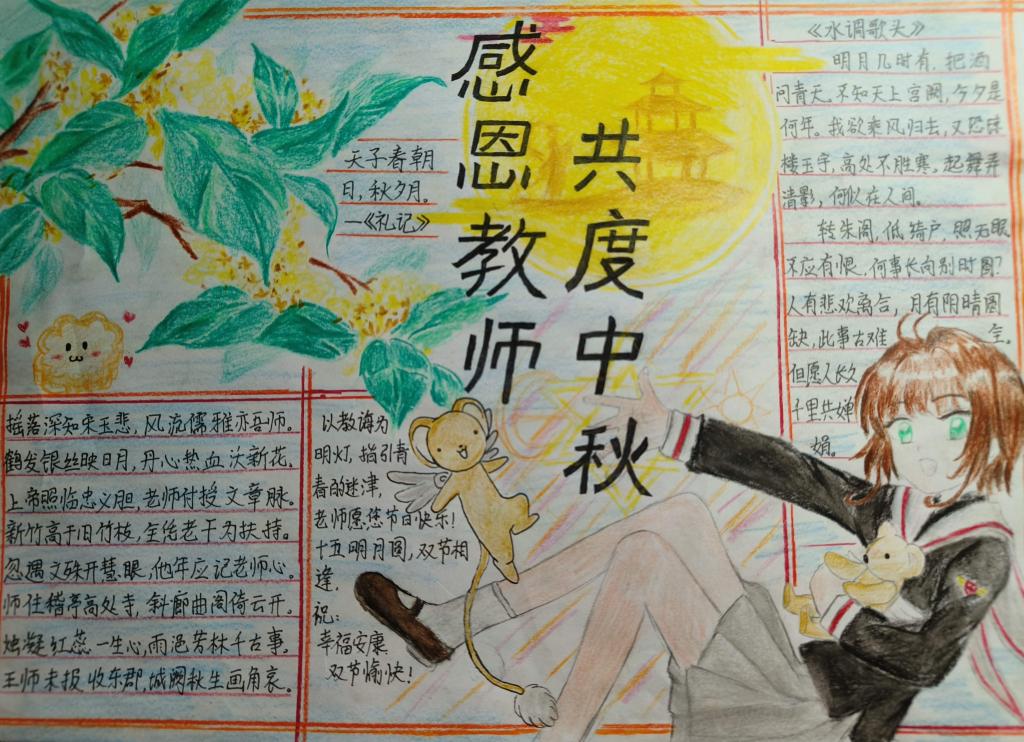 感恩教师
共度中秋
天子春朝
日，秋夕月。
—《礼记》
《水调歌头》
明月几时有，把酒
问青天，不知天上宫阙，今夕是
何年。我欲乘风归去，又恐琼
楼玉宇，高处不胜寒。起舞弄
清影，何似在人间。
转朱阁，低绮户，照无眠
不应有恨，何事长向别时圆？
人有悲欢离合，月有阴晴圆
缺，此事古难 全。
但愿人长久
千里共婵
娟。
摇落深知宋玉悲，风流儒雅亦吾师。
鹤发银丝映日月，丹心热血沃新花。
上帝照临忠义胆，老师付授文章脉。
新竹高于旧竹枝，全凭老干为扶持。
忽遇文殊开慧眼，他年应记老师心。
师住稽亭高处寺，斜廊曲阁倚云开。
烛凝红蕊一生心，雨浥芳林千古事。
王师未报收东郡，城阙秋生画角哀。
以教诲为
明灯，指引青
春的迷津，
老师愿您节日快乐！
十五明月圆，双节相
逢，
祝：
幸福安康
双节愉快！